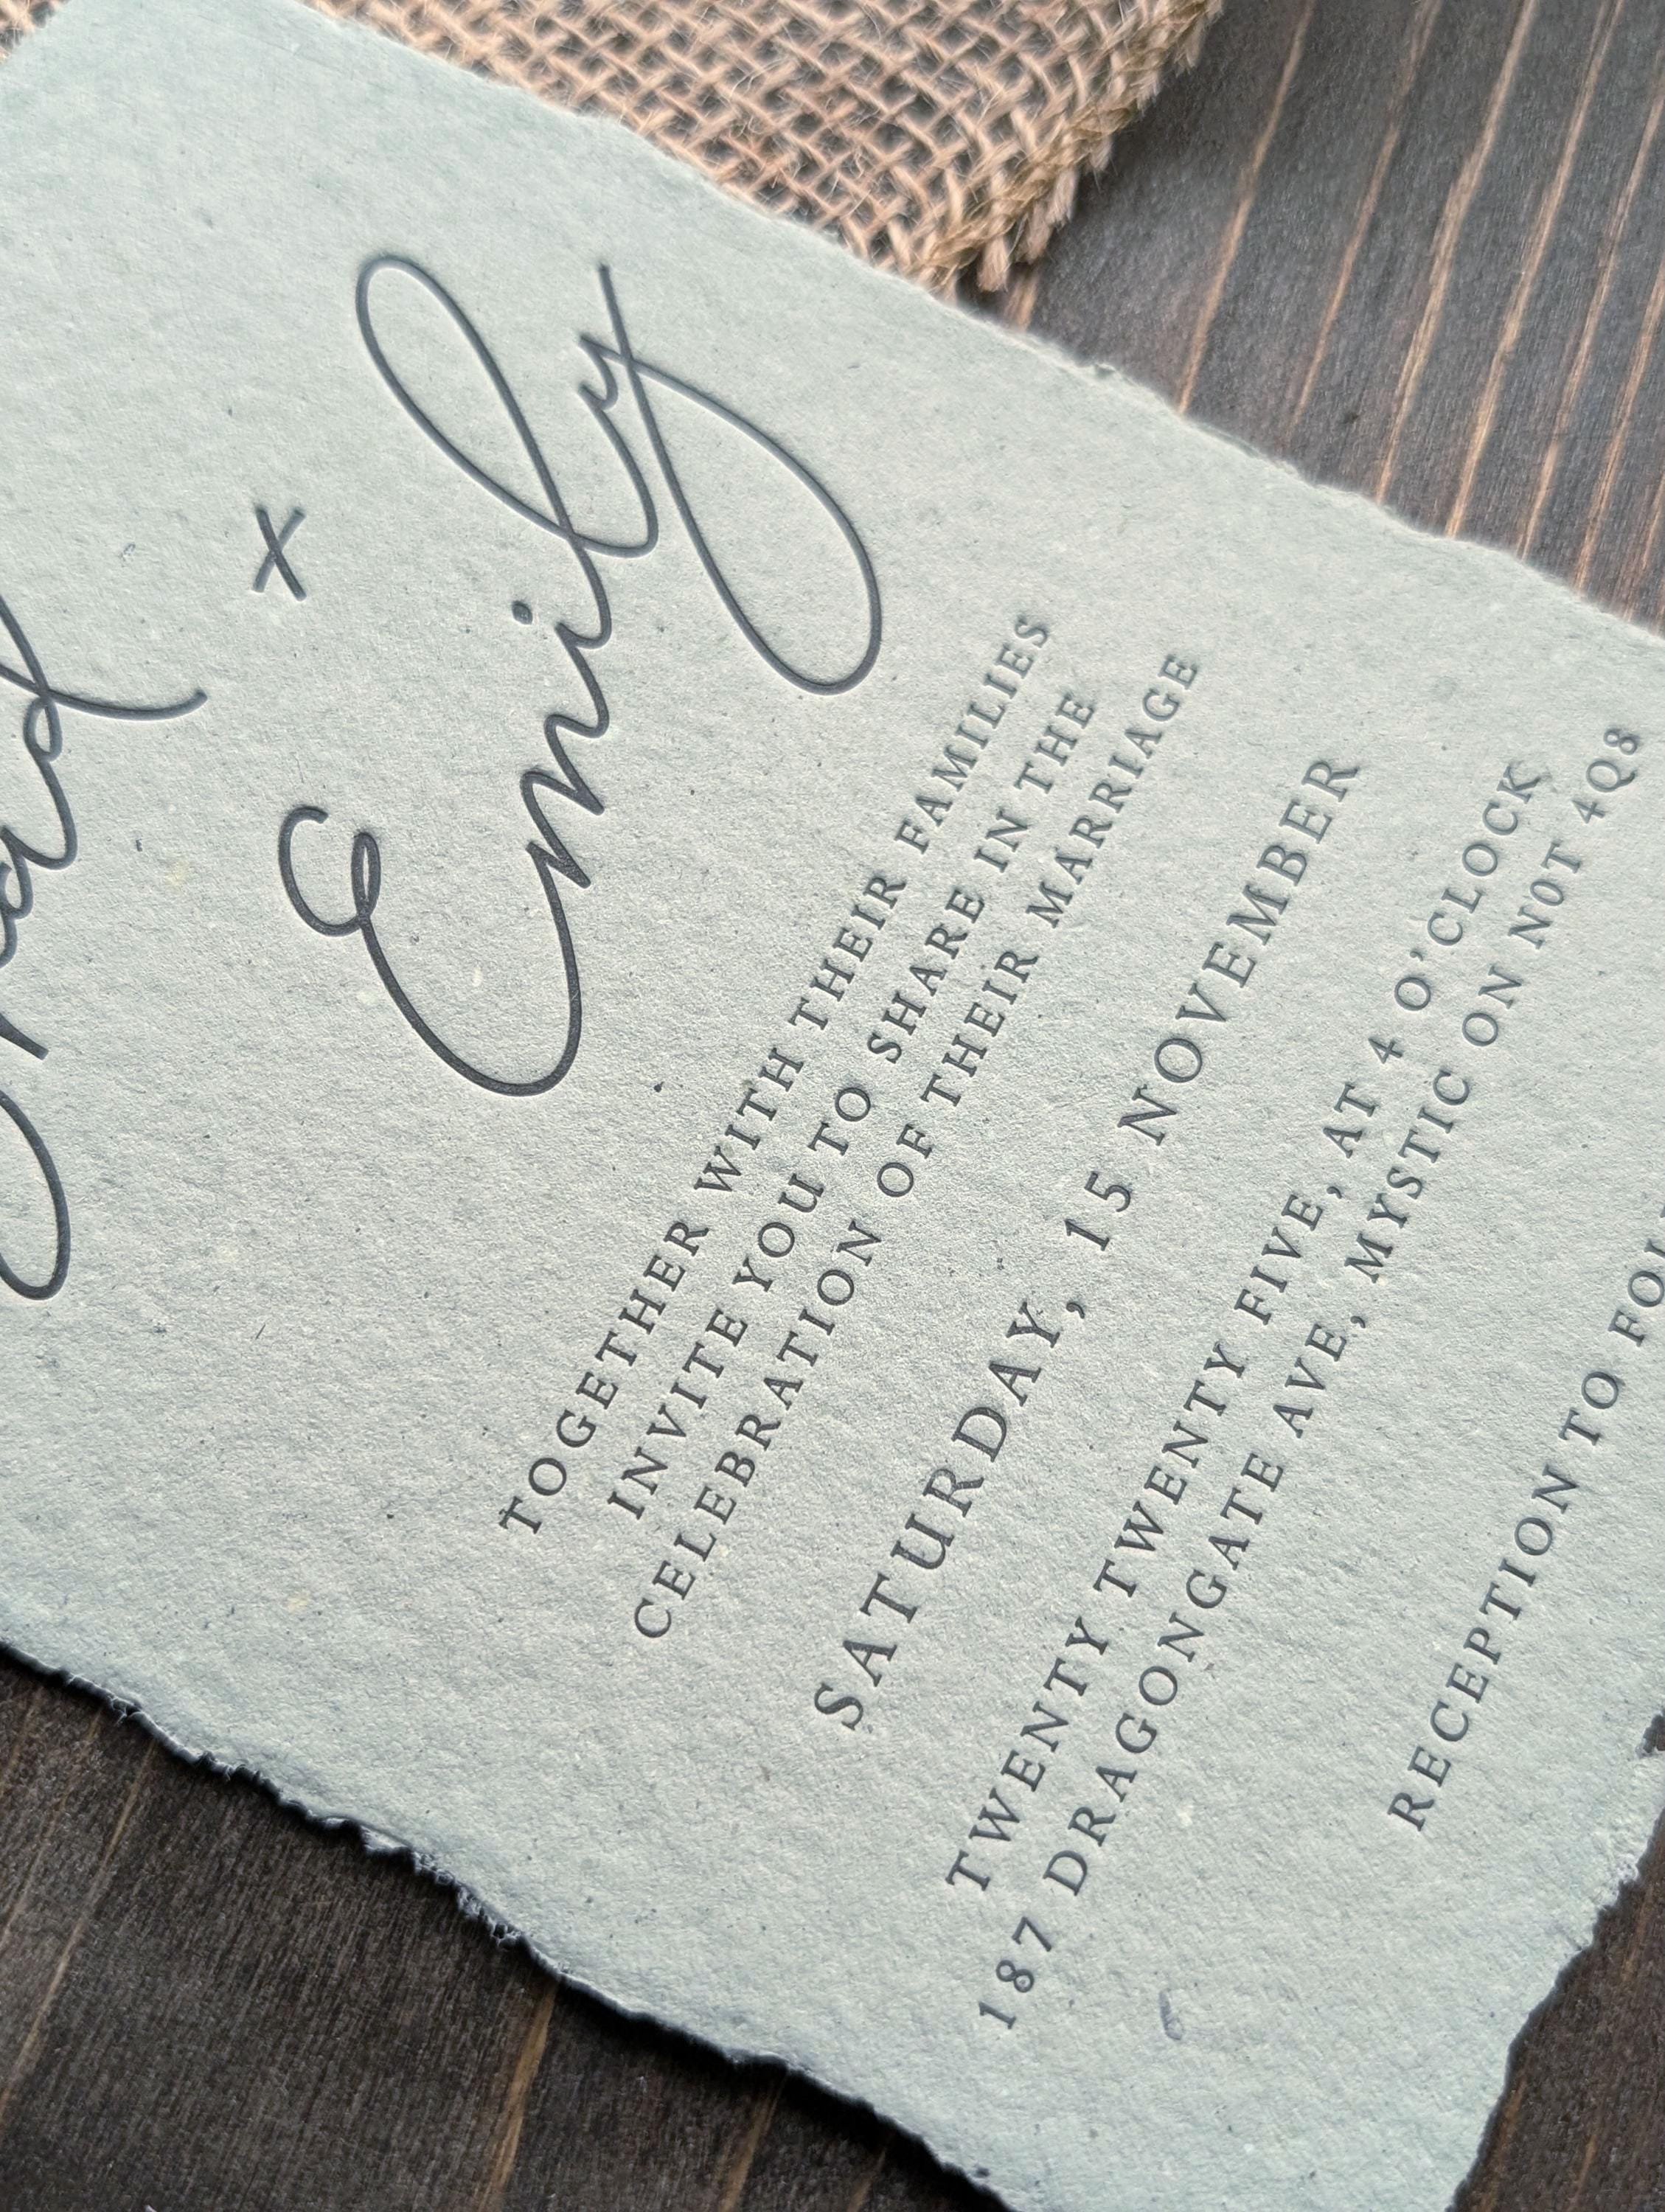 x
Emily
TOGETHER WITH THEIR FAMILIES
INVITE YOU TO SHARE IN THE
CELEBRATION OF THEIR MARRIAGE
SATURDAY, 15 NOVEMBER
TWENTY TWENTY FIVE, AT 4 O'CLOCK
187 DRAGONGATE AVE, MYSTIC ON N0T 4Q8
RECEPTION TO